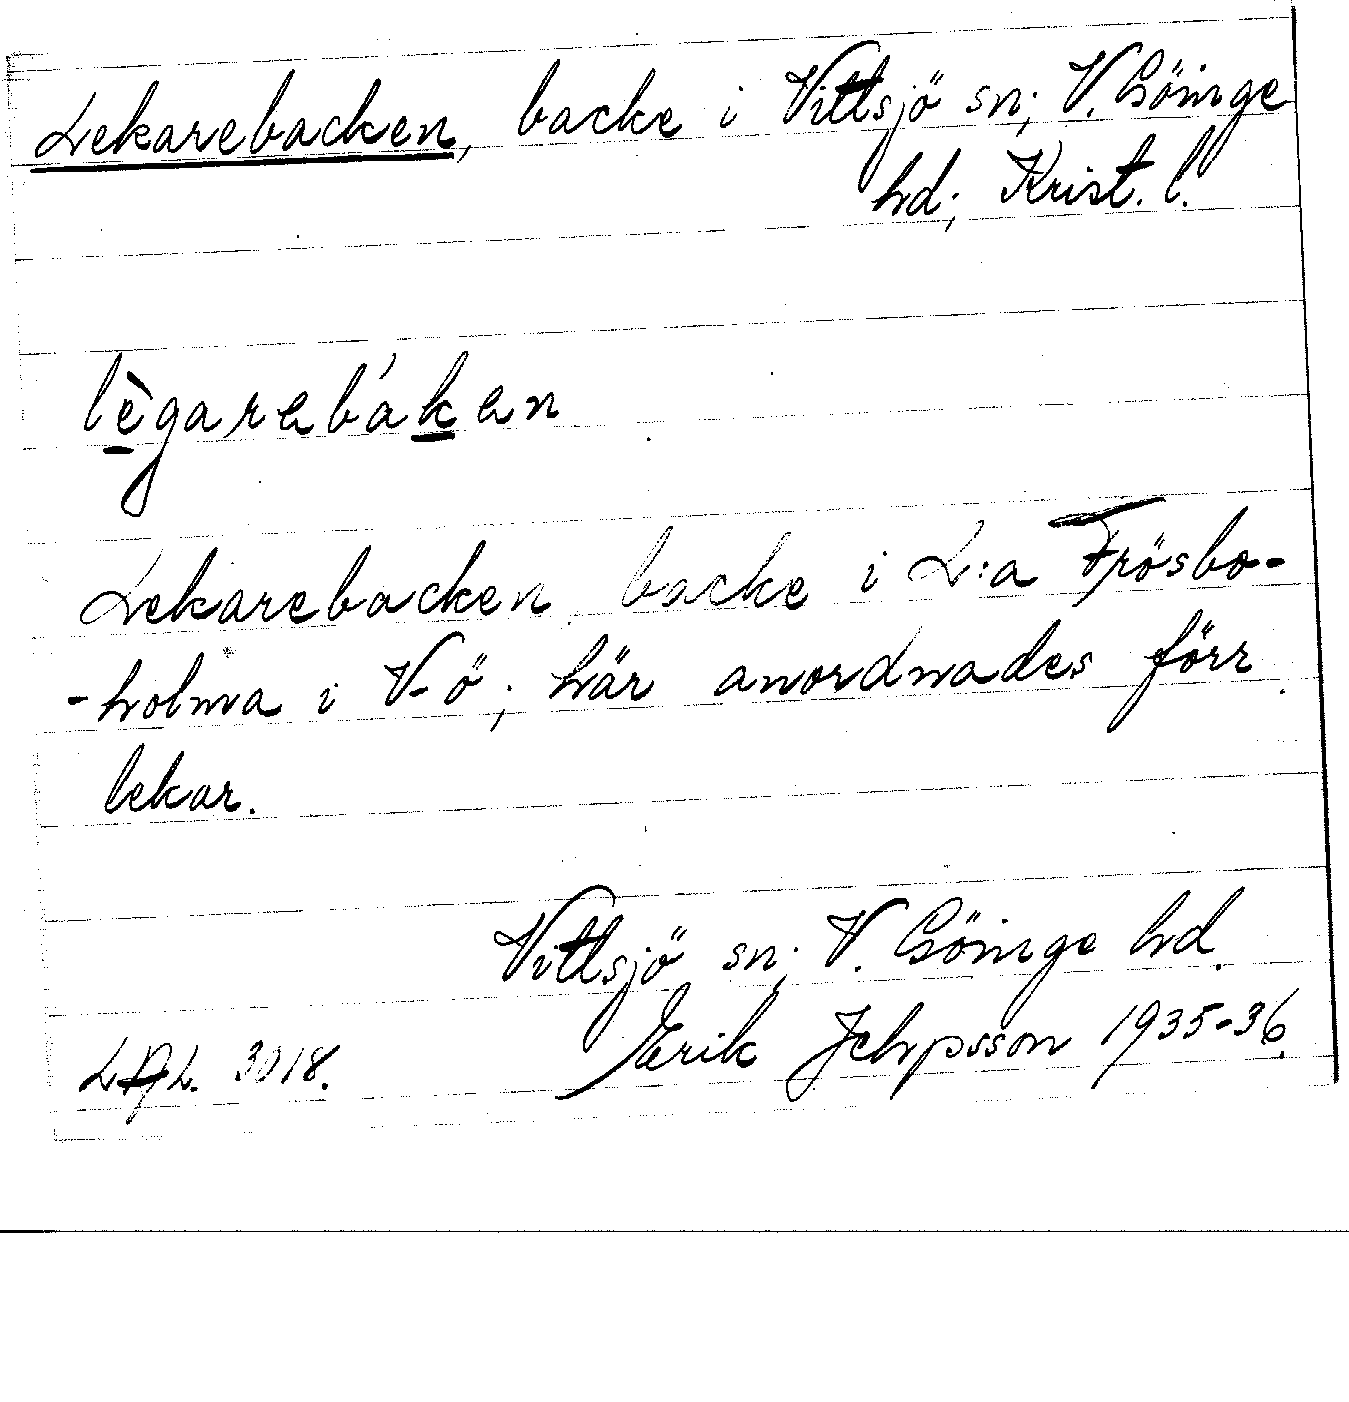 Lekarebacken, backe i Vittsjö sn; V. Göinge
hd; Krist. l.
lègarebáken
Lekarebacken, backe i L:a Frösbo-
-holma i V-ö; här anordnades förr
lekar.
Vittsjö sn; V. Göinge hd.
Erik Jehpsson 1935-36.
LAL. 3018.